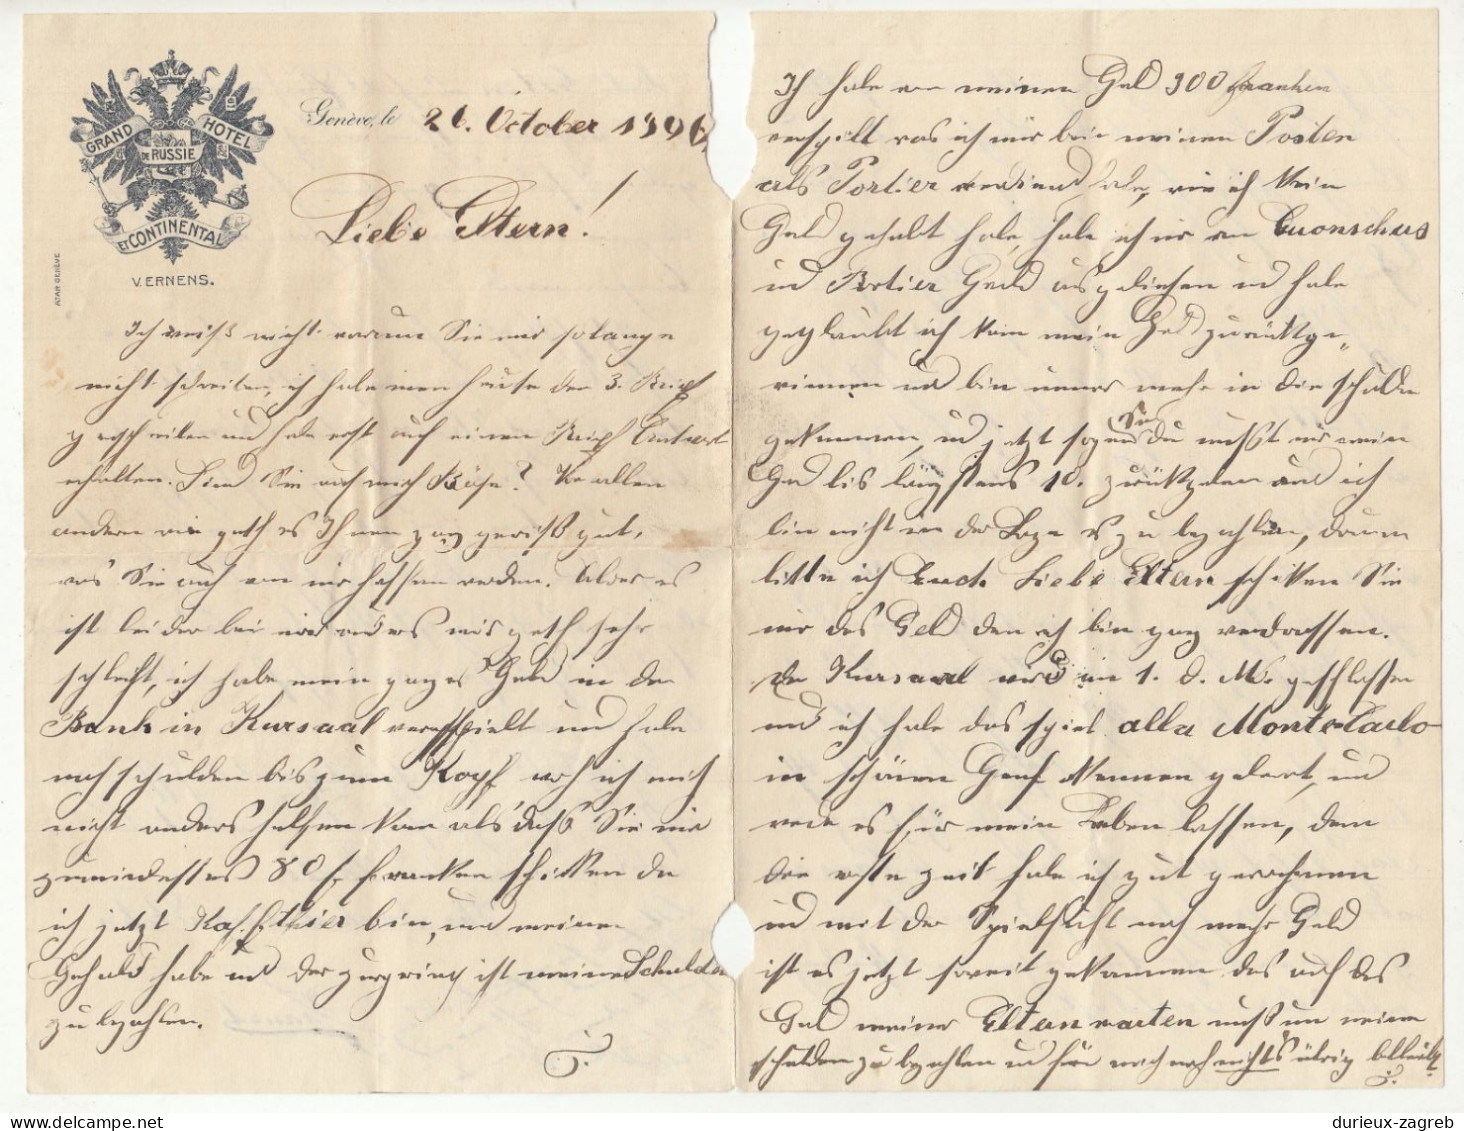 GRAND HOTEL
DE RUSSIE
ET CONTINENTAL
V. ERNENS.
ATAR GENÈVE
Genève, le 26. October 1906.
Liebe Eltern!
Ich weiß nicht warum Sie mir so lange
nicht schreiben, ich habe ihnen heute den 3. Brief
geschrieben und habe erst auf einen Brief Antwort
erhalten. Sind Sie auf mich Böse? Vor allen
andern wie geth es Ihnen ganz gewiß gut,
was Sie auch von mir hoffen werden. Aber es
ist leider bei mir anders mir geth sehr
schlecht, ich habe mein ganzes Geld in der
Bank in Kursaal verspielt und habe
noch schulden bis zum Kopf, wo ich mich
nicht anders helfen kan als daß Sie mir
zumindestens 80 f. franken schikken da
ich jetzt bin, und meinen
Gehald habe und der zu gering ist meine Schulden
zu bezahlen.
Ich habe von meinen Geld 300 franken
verspilt was ich mir bei meinen Posten
als Portier verdient habe, wie ich kein
Geld gehabt habe, habe ich mir von
und Portier Geld ausgeliehen und habe
geglaubt ich kann mein Geld zurükkge-
winnen und bin immer mehr in die schulden
gekommen, und jetzt sagen Sie Du mußt mir mein
Geld bis längstens 10. zurükkgeben und ich
bin nicht in der Lage es zu bezahlen, darum
bitte ich Euch Liebe Eltern schikken Sie
mir das Geld den ich bin ganz verdrossen.
Der Kursaal wird am 1. d. M. geschlossen
und ich habe das spiel alla Monte-Carlo
in schönen Genf kennen gelernt, und
werde es für mein Leben lassen, denn
die erste zeit habe ich gut gewonnen
und mit der Spielsucht nach mehr Geld
ist es jetzt soweit gekommen das auf das
Geld meiner Eltern warten muß um meine
schulden zu bezahlen und für mich noch nichts übrig
durieux-zagreb